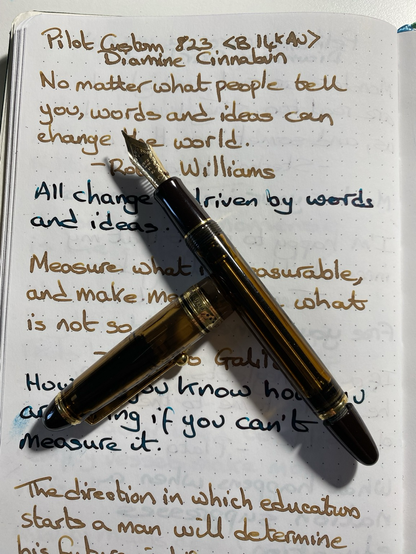 Pilot Custom 823 <B, 14k Au>
Diamine Cinnabain
No matter what people tell
you, words and ideas can
change the world.
Williams
All change driven by words
and ideas.
Measure what measurable,
and make what
is not so
How you know how you
if you can't
measure it.
The direction in which education
starts a man will determine
his future